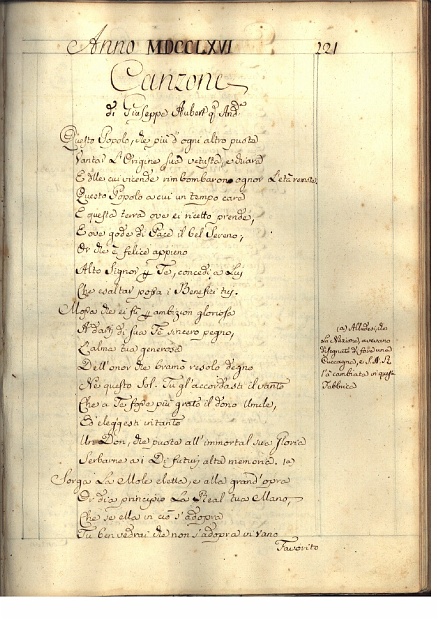 Anno MDCCLXVI
221
Canzone
di Giuseppe Aubert q. And.
Questo Popolo, che più d'ogni altro puote
Vantar l'Origine sua vetusta, e chiara
E delle cui vicende rimbombarono ognor
Questo Popolo a cui un tempo cara
E questa terra ove ei ricetto prende,
E ove gode di Pace il bel Sereno;
Or che è felice appieno
Alto Signor Te, concedi a Lui
Che esaltar possa i Benefici tui.
Mossa che ei fù ambizion gloriosa
A darti di sua Fè sincero pegno,
L'alma tua generosa
Dell'onor che bramò resolo degno
Ne questo Sol. Tu gl'accordasti il vanto
Che a Te fosse più grato il dono Umile,
Ed eleggesti intanto
Un Don, che puote all'immortal sua Gloria
Serbarne a i Dì futuri alta memoria. 1a
Sorga La Mole eletta, e alla grand'opra
Or dia principio La Real tua Mano,
Che se ella in ciò s'adopra
Tu ben vedrai che non s'adopra in vano
Favorito
la Nazione, avevano
disegnato di fare una
Cuccagna, e S.A.R.
l'à cambiata in questa
Fabbrica